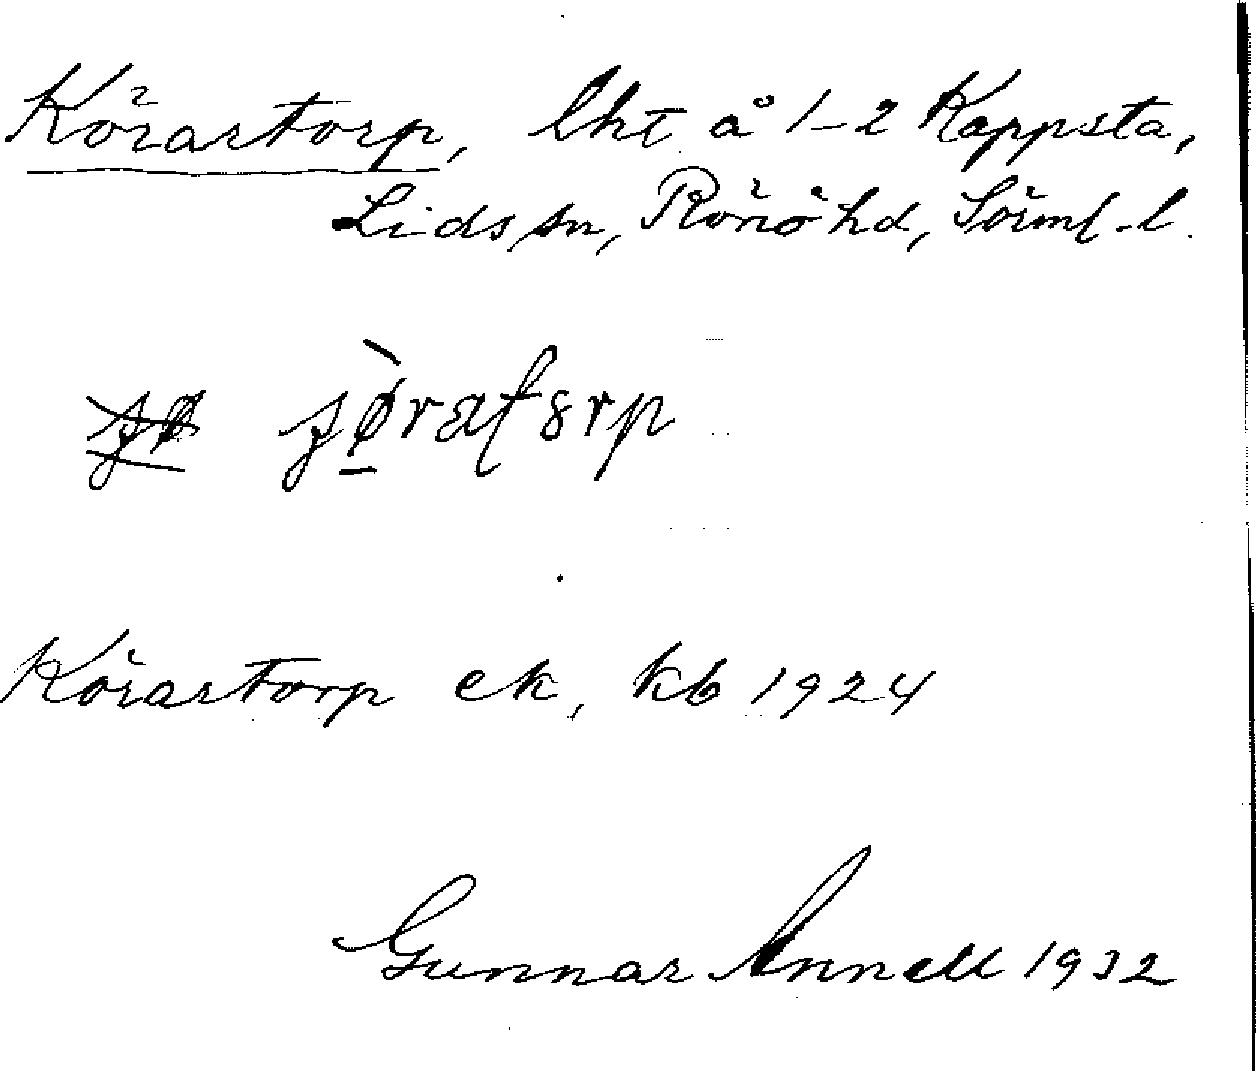 Körartorp, lht å 1-2 Kappsta,
Lids sn, Rönö hd, Sörml. l.
Körartorp ek, kb 1924
Gunnar Annell 1932